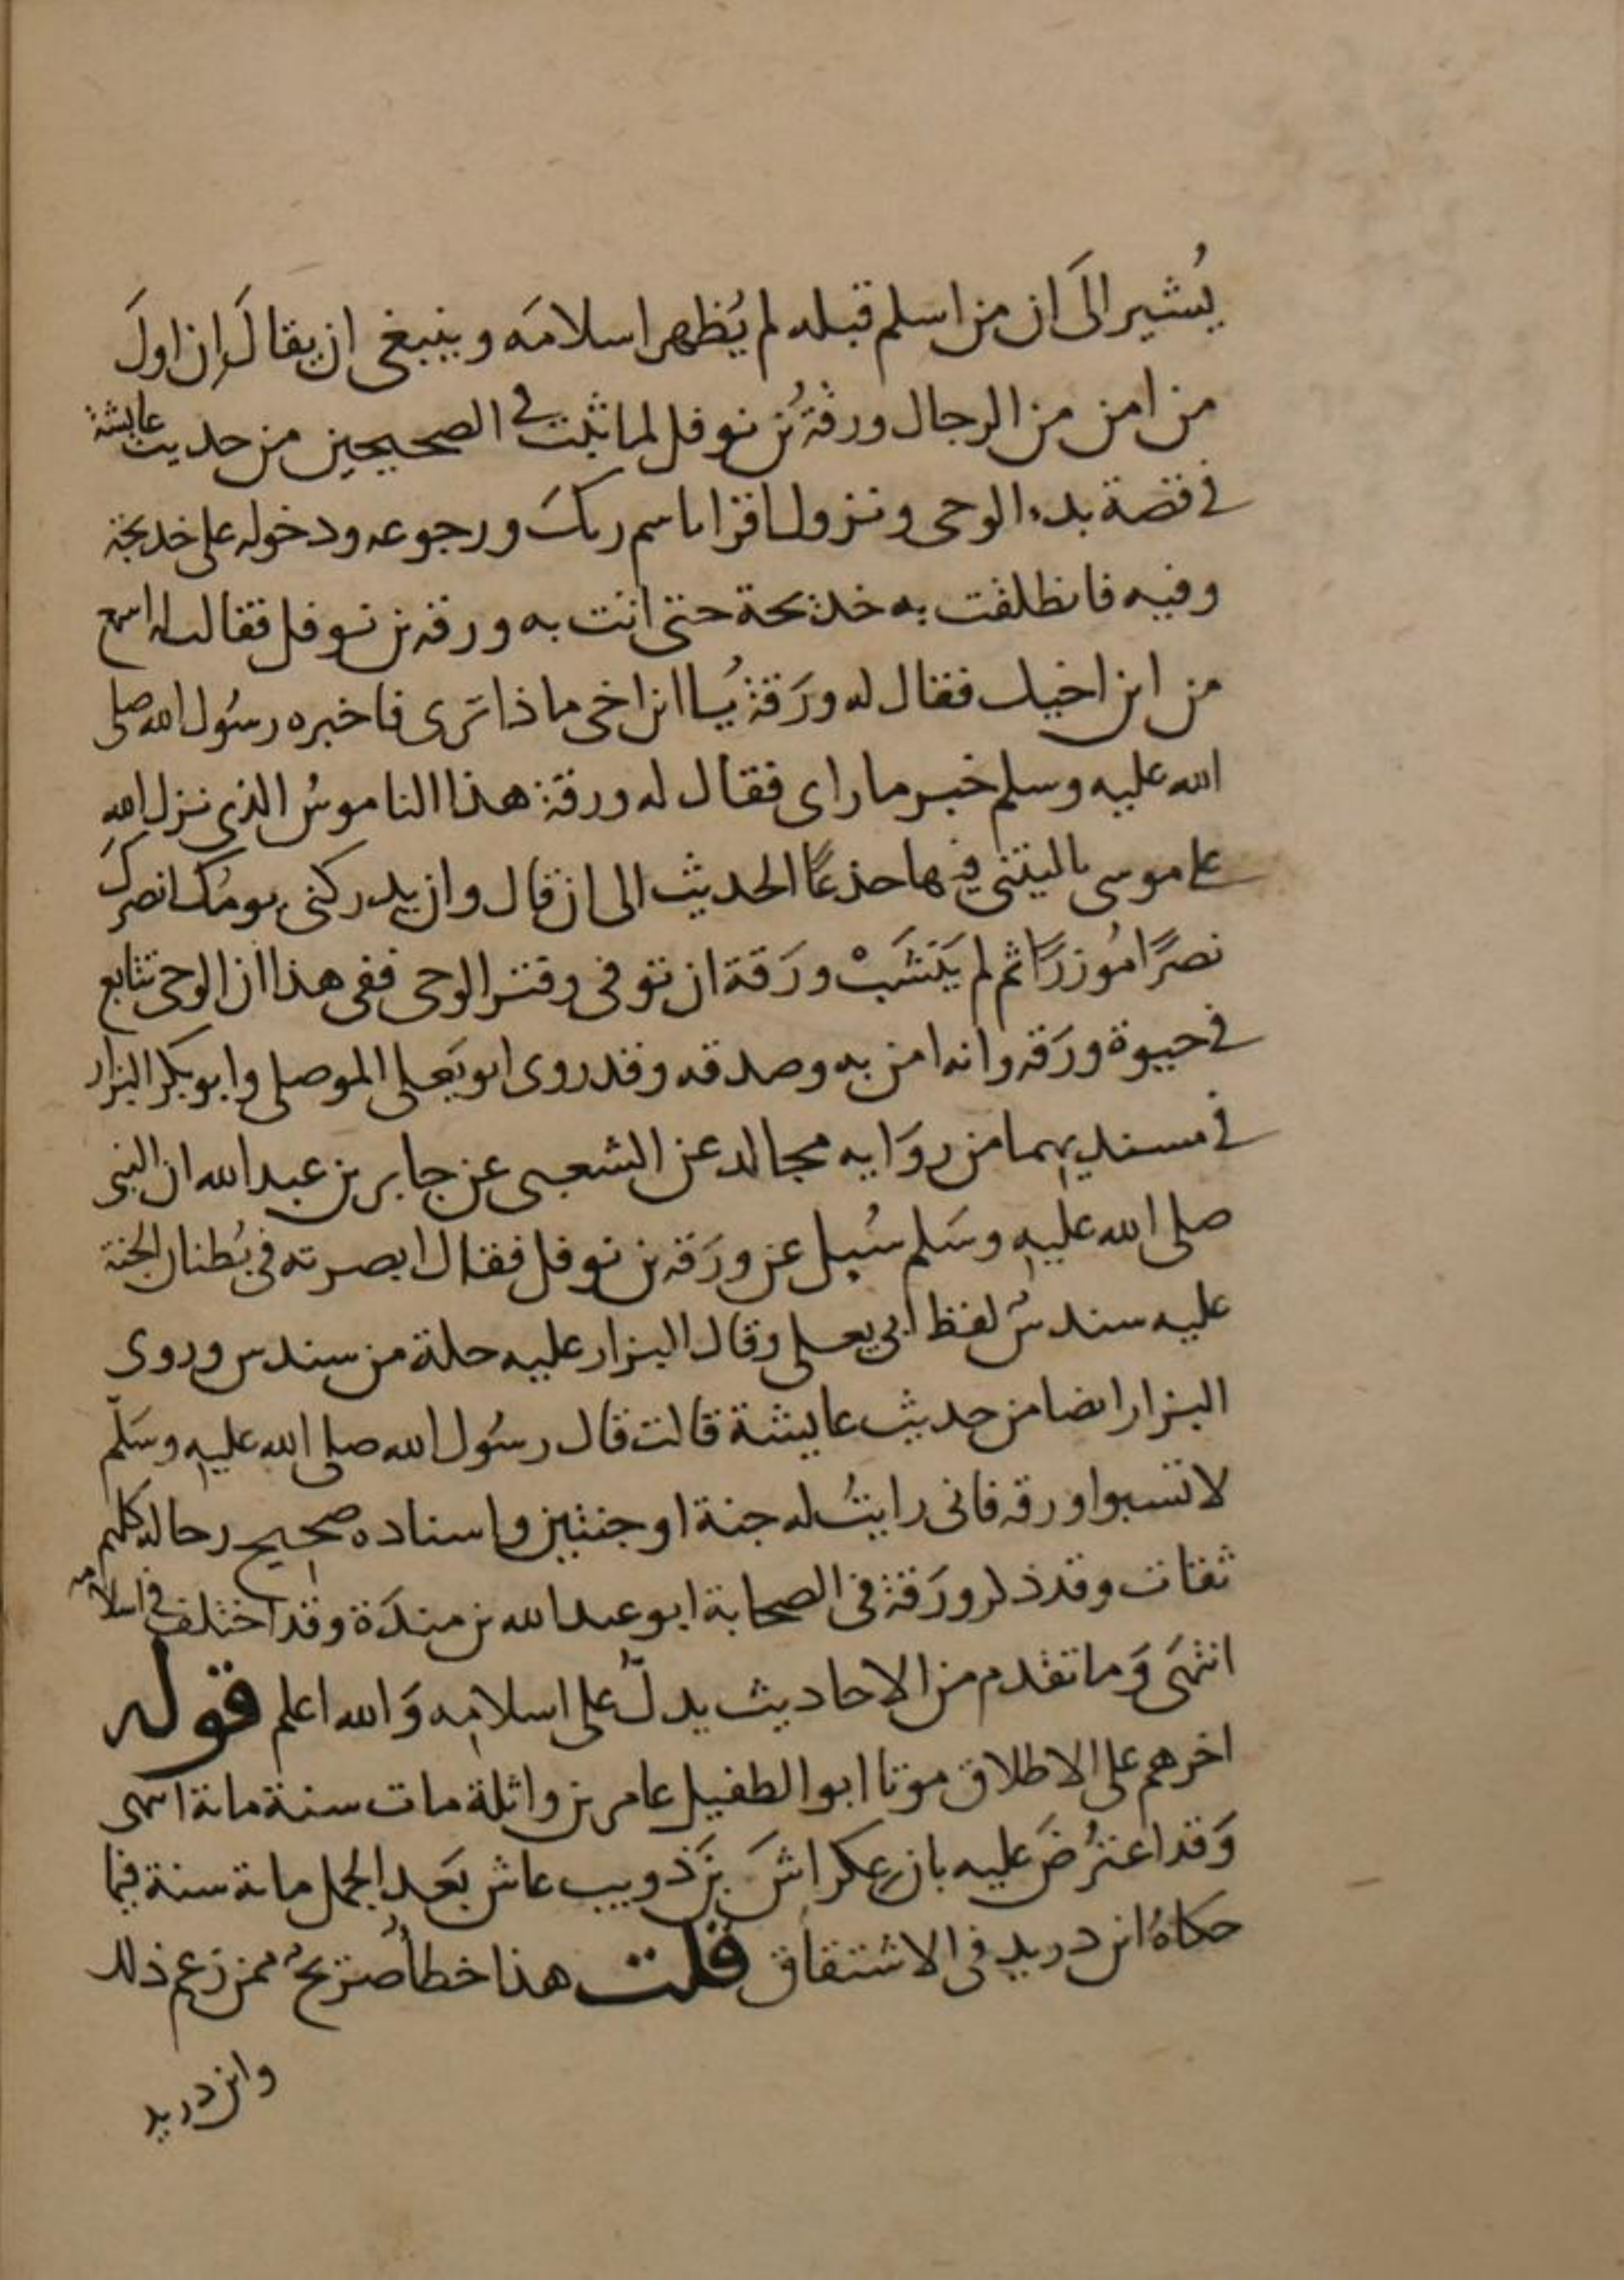 يُشير الىَ ان من اسلم قبله لم يُظهر اسلامَه وينبغي ان يقالَ إن اولَ
من امن من الرجال ورقة بُن نوفل لما ثبت في الصحيحين من حديث عايشة
في قصة بدء الوحى ونزول اقرا باسم ربكَ ورجوعه ودخوله على خديجة
وفيه فانطلقت به خديجة حتى اتت به ورقه بن نوفل فقالت له اسمع
من ابن اخيك فقال له ورَقة يُا ابن اخى ماذا ترَى فاخبره رسُول الله صلى
الله عليه وسلم خبر ما راى فقال له ورقة هذا الناموسُ الذى نزل الله
على موسى ياليتنى فيها جذعًا الحديث الى ان قال وان يدركنى يومُك انصركَ
نصرًا مُوزرًا ثم لم يَنشَبْ ورَقة ان توفى وفتر الوحى ففى هذا ان الوحى تتابع
في حيوة ورَقه وانه امن به وصدقه وقد روى ابو يَعلى الموصلى وابو بكر البزار
في مسنديهما من روَايه مجالد عن الشعبى عن جابر بن عبد الله ان النبى
صلى الله عليه وسَلم سُيل عن ورَقه بن نوفل فقال ابصرته في بُطنان الجنة
عليه سندسٌ لفظ ابي يعلى وقال البزار عليه حلة من سندس وروى
البزار ايضا من حديث عايشة قالت قال رسُول الله صلى الله عليه وسَلّم
لا تسبوا ورقه فانى رايتُ له جنة او جنتين واسناده صحيح رجاله كلهم
ثقات وقد ذكر ورَقة فى الصحابة ابو عبد الله بن مندَة وقد اختلف في اسلامه
انتهَى وَما تقدم من الاحاديث يدلّ على اسلامِه وَالله اعلم قوله
اخرهم على الاطلاق موتا ابو الطفيل عامر بن واثلة مات سنة ماية انتهى
وَقد اعترُضَ عليه بان عِكراشَ بنَ ذويب عاش بَعد الجمل ماية سنة فيما
حكاهُ ابن دريد فى الاشتقاق قلت هذا خطأٌ صريحٌ ممن زعم ذلك
وابن دريد